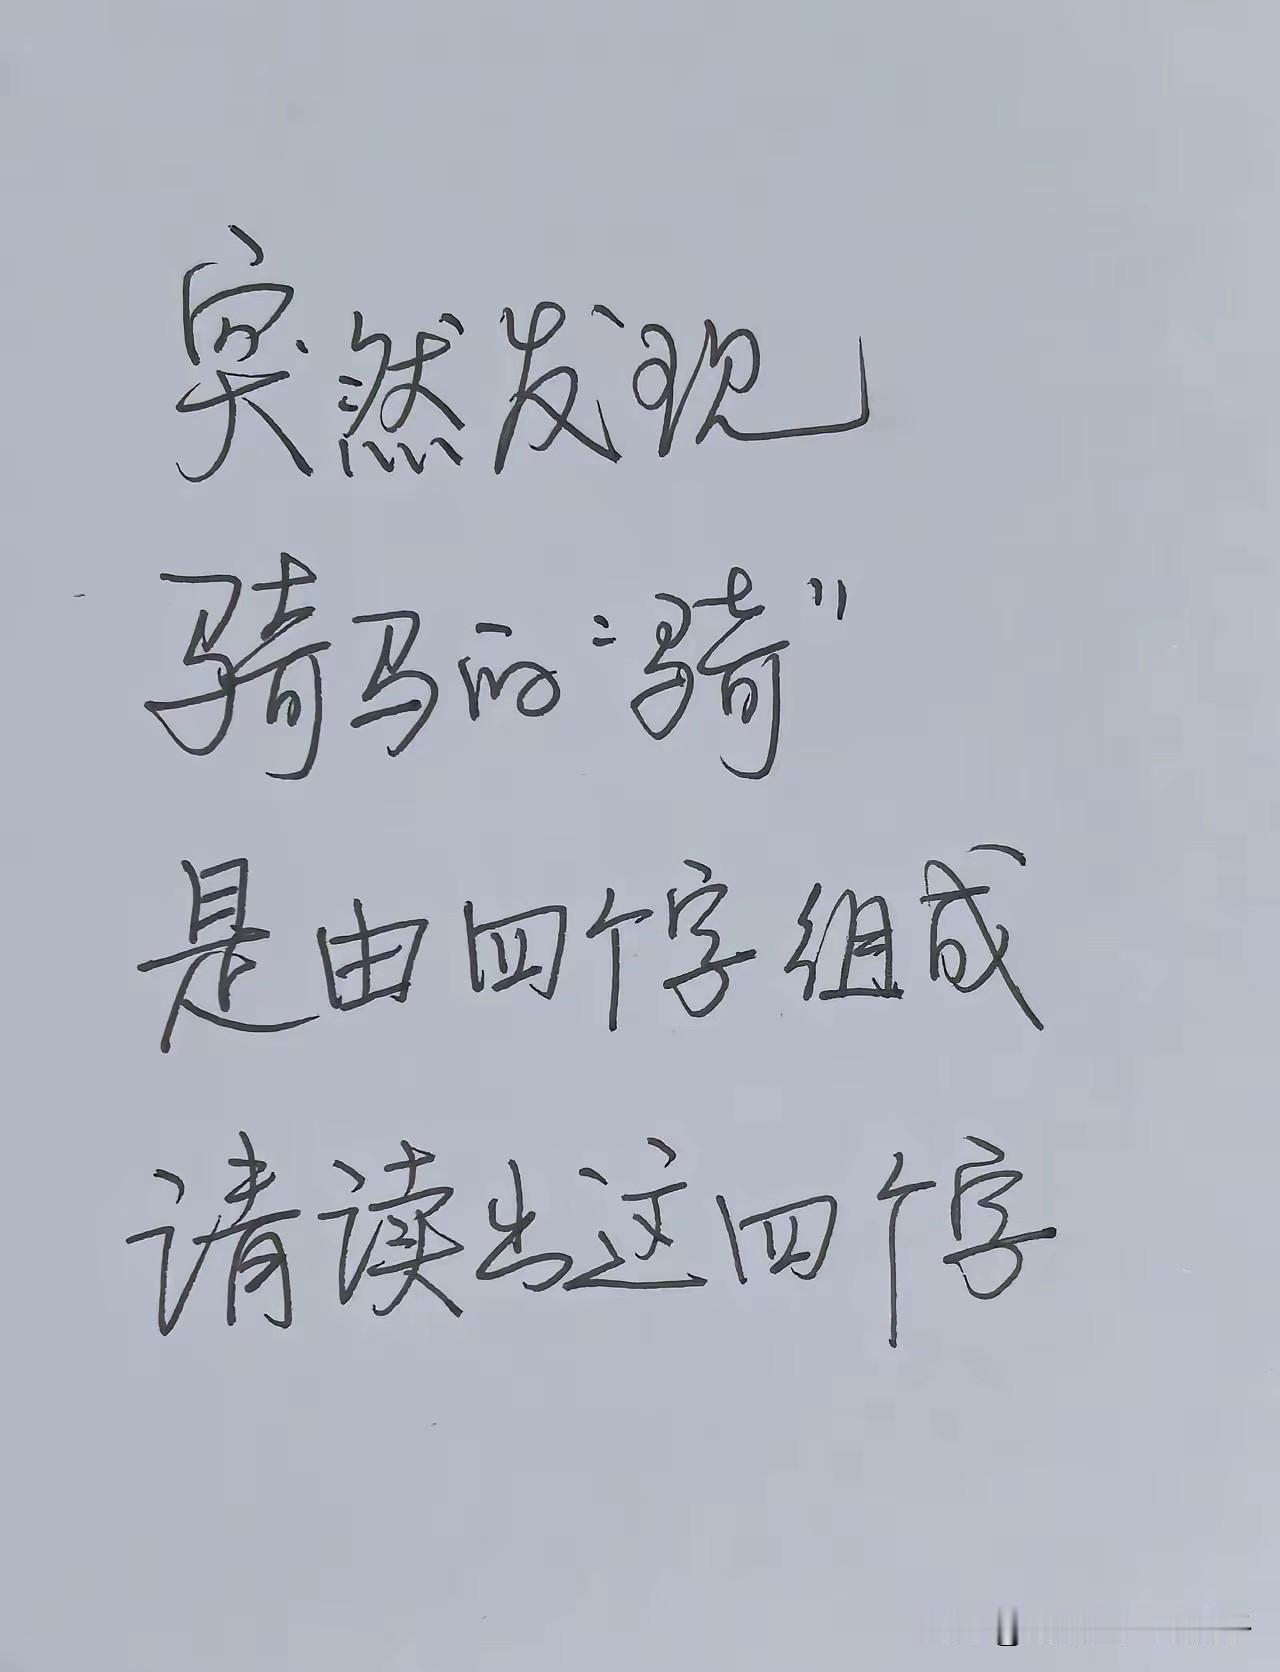 突然发现
骑马的“骑”
是由四个字组成
请读出这四个字